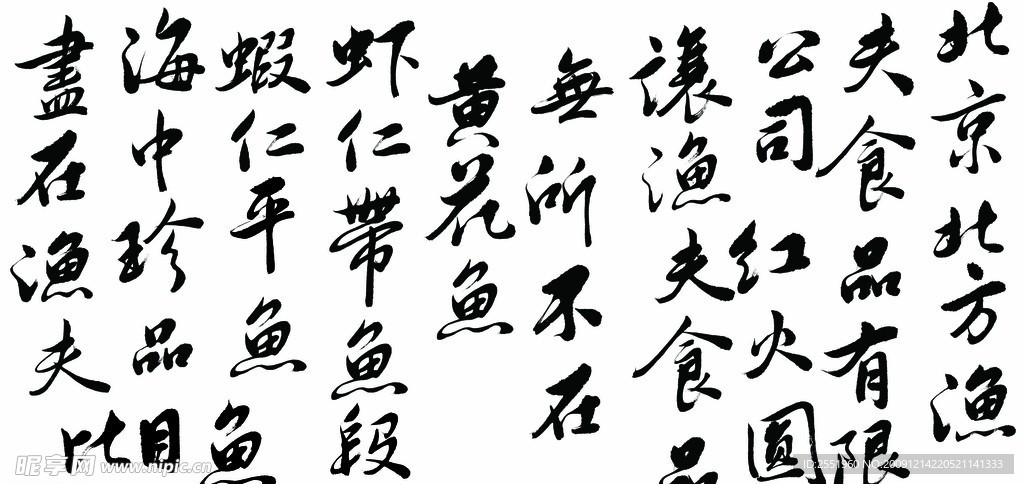 北京北方漁
夫食品有限
公司红火圆
讓漁夫食品
無所不在
黄花魚
虾仁帶魚段
蝦仁平魚
海中珍品
盡在漁夫
比目魚
昵享网 www.nipic.cn
ID:2551960 NO:20091214220521141333